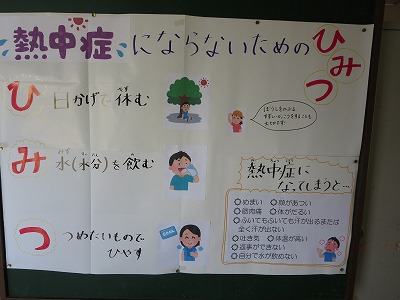 熱中症にならないための ひみつ
ひ 日かげで休む
み 水(水分)を飲む
つ つめたいもので
ひやす
熱中症に
なってしまうと…
◎めまい ◎顔があつい
◎筋肉痛 ◎体がだるい
◎ふいてもふいても汗が出るまたは
全く汗が出ない
◎吐き気 ◎体温が高い
◎返事ができない
◎自分で水が飲めない